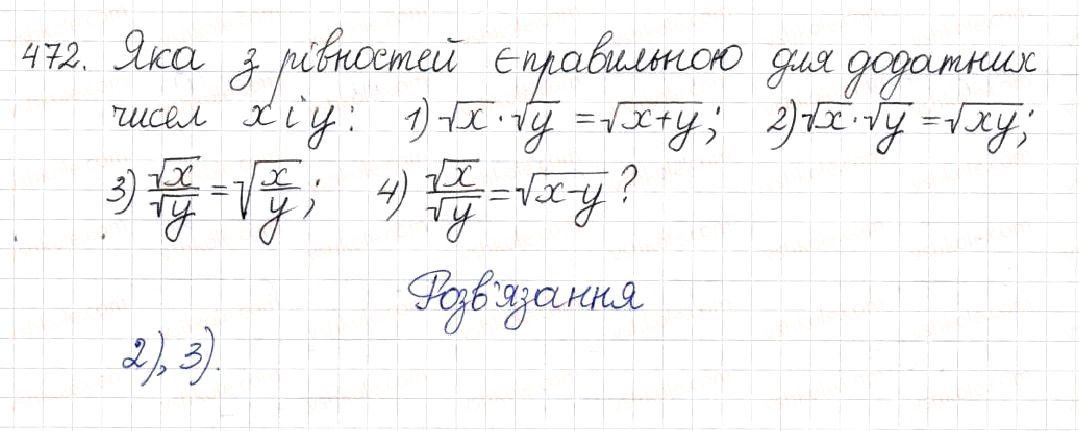 472. Яка з рівностей є правильною для додатних
чисел x і y: 1) √x · √y = √(x+y); 2) √x · √y = √(xy);
3) √x/√y = √(x/y); 4) √x/√y = √(x-y)?
Розв'язання
2), 3).